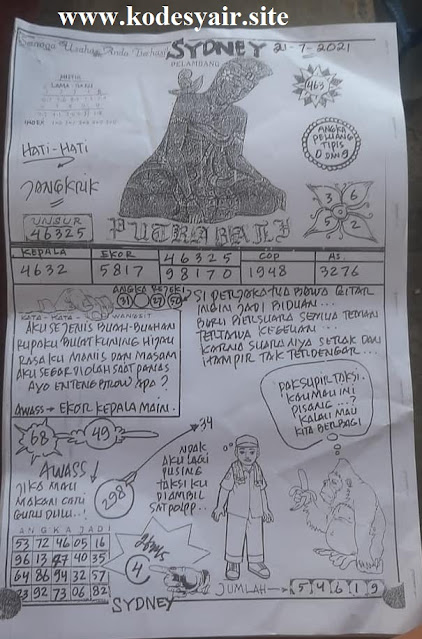 www.kodesyair.site
Semoga Usaha Anda Berhasil SYDNEY 21-7-2021
PELAMBANG
MISTIK
LAMA - BARU
INDEX
469
HATI-HATI
JANGKRIK
ANGKA
PELUANG
TIPIS
0 DAN 9
UNSUR
46325
3 6
5 2
PUTRA BALI
KEPALA EKOR 46325 COP AS.
4632 5817 98170 1948 3276
ANGKA REJEKI
31 27 50
KATA - KATA WANGSIT
AKU SEJENIS BUAH-BUAHAN
RUPAKU BULAT KUNING HIJAU
RASAKU MANIS DAN MASAM
AKU SEGAR DIOLAH SAAT PANAS
AYO ENTENG BROW APA ?
AWASS → EKOR KEPALA MAIN.
SI PERJAKA TUA BAWA GITAR
INGIN JADI BIDUAN...
BARU BERSUARA SEMUA TEMAN
TERTAWA KEGELIAN...
KARNA SUARANYA SERAK DAN
HAMPIR TAK TERDENGAR...
68 49
34
298
AWASS
JIKA MAU
MAKAN CARI
GURU DULU..!
NDAK
AKU LAGI
PUSING
TAKSI KU
DIAMBIL
SATPOLPP..
PAK SUPIR TAKSI.
KAU MAU INI
PISANG...?
KALAU MAU
KITA BERBAGI
ANGKA JADI
53 72 46 05 16
96 13 47 40 35
64 86 94 32 57
23 92 73 06 82
4
SYDNEY
JUMLAH → 5 4 6 1 9